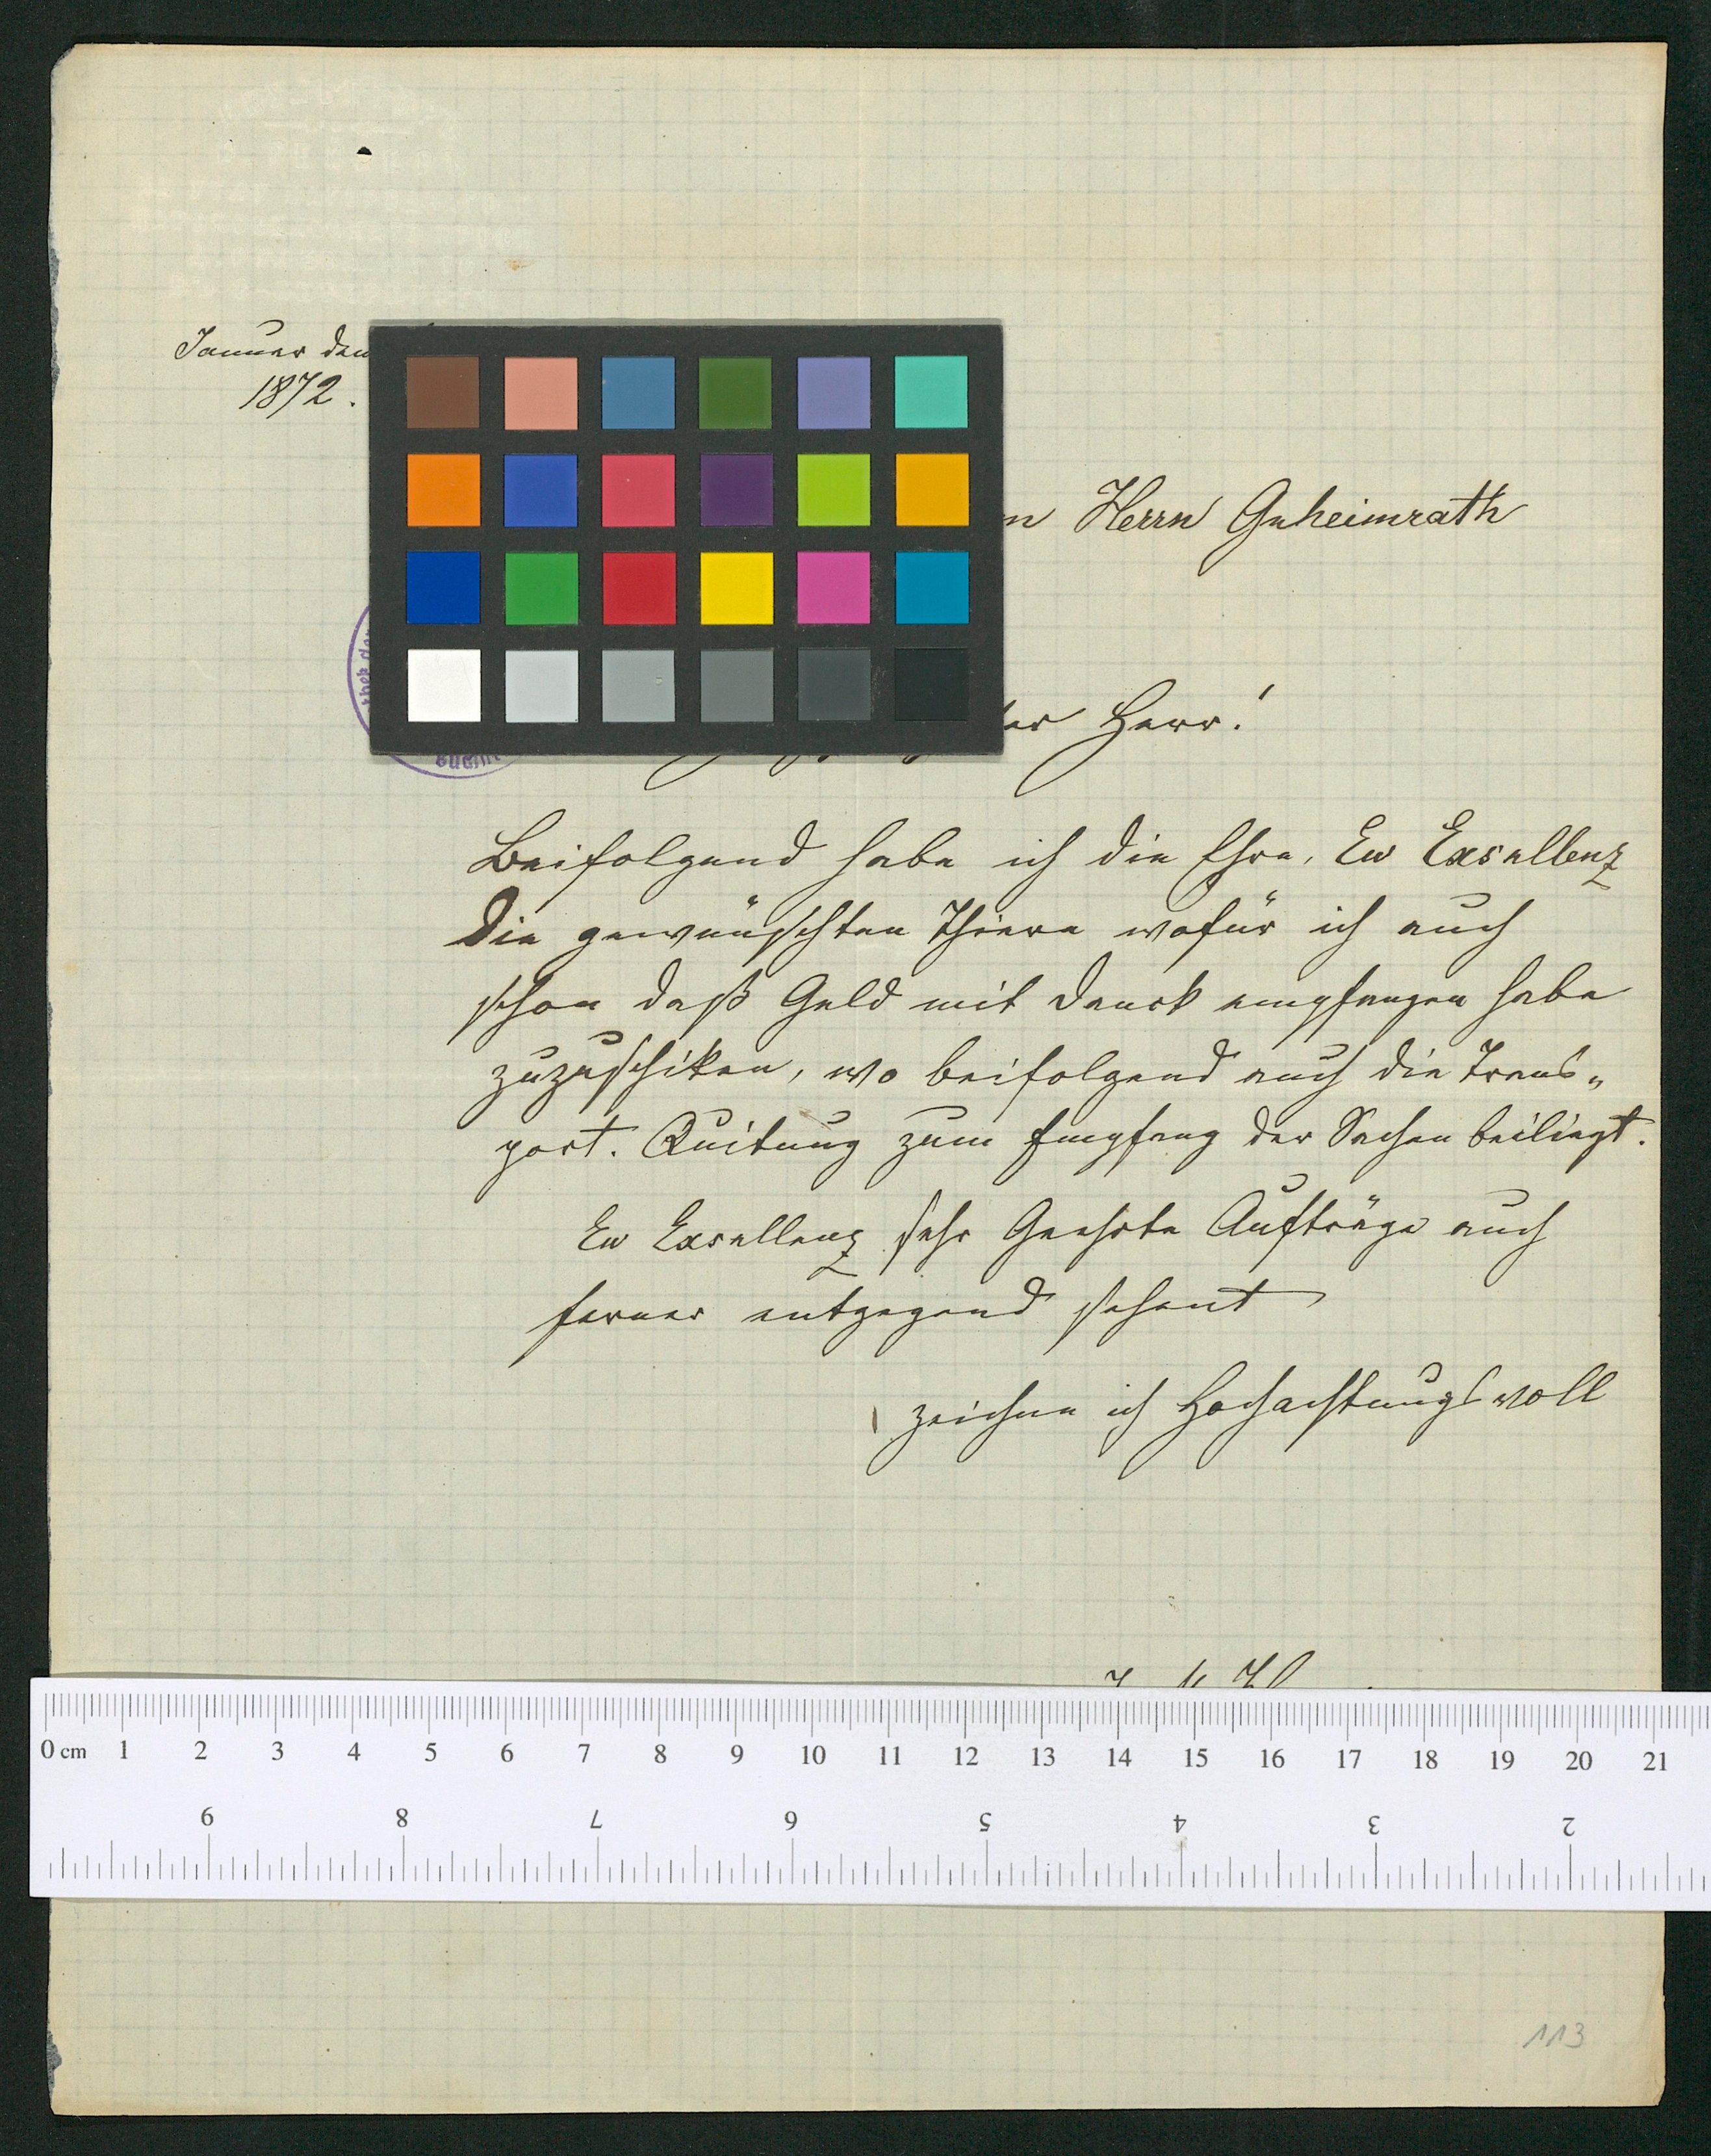 Januar den
1872.
n Herrn Geheimrath
ter Herr!
Beifolgend habe ich die Ehre, Ew Exsellenz
Die gewünschten Thiere wofür ich auch
schon daß Geld mit Danck empfangen habe
zuzuschiken, wo beifolgend auch die Trans„
port. Quitung zum Empfang der Sachen beiliegt.
Ew Exsellenz sehr Geehrte Aufträge auch
ferner entgegend sehent
zeichne ich Hochachtungsvoll
0 cm 1 2 3 4 5 6 7 8 9 10 11 12 13 14 15 16 17 18 19 20 21
9 8 7 6 5 4 3 2
113